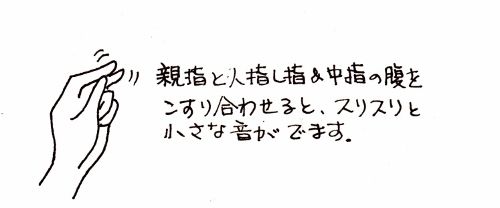 親指と人指し指&中指の腹を
こすり合わせると、スリスリと
小さな音がでます.